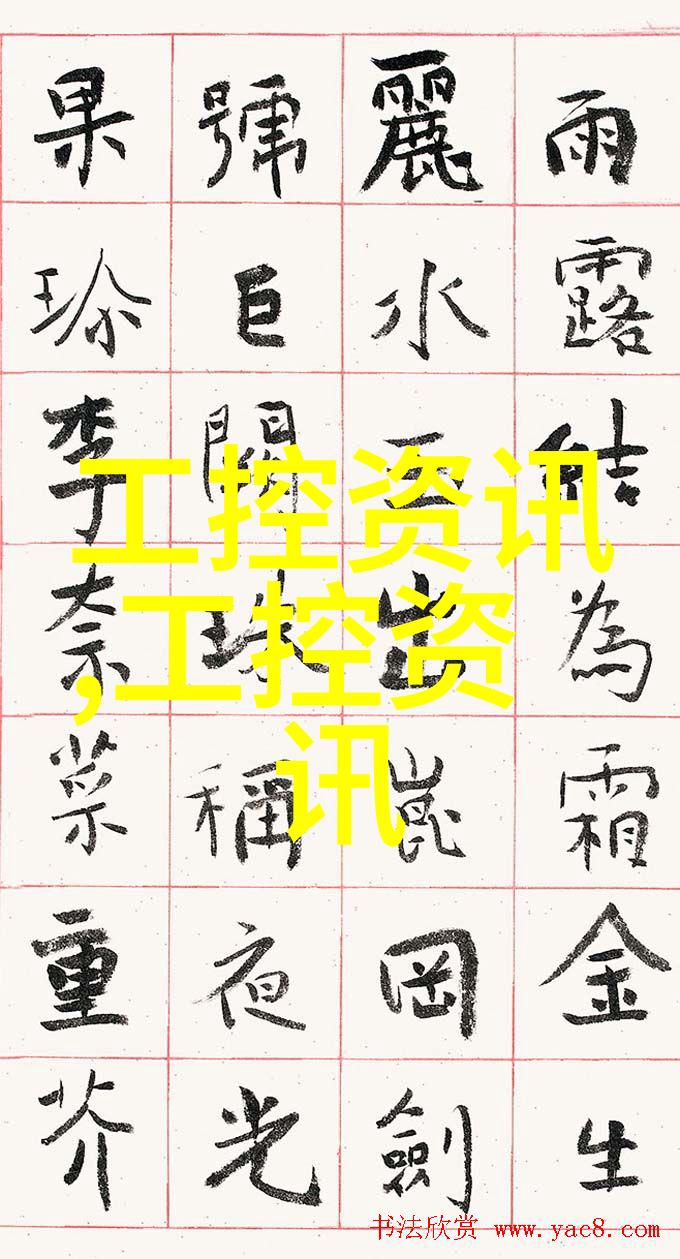 雨露結為霜金生
麗水玉出崑岡劍
號巨闕珠稱夜光
果珍李奈菜重芥
工控资讯
,工控资
讯
书法欣赏 www.yac8.com